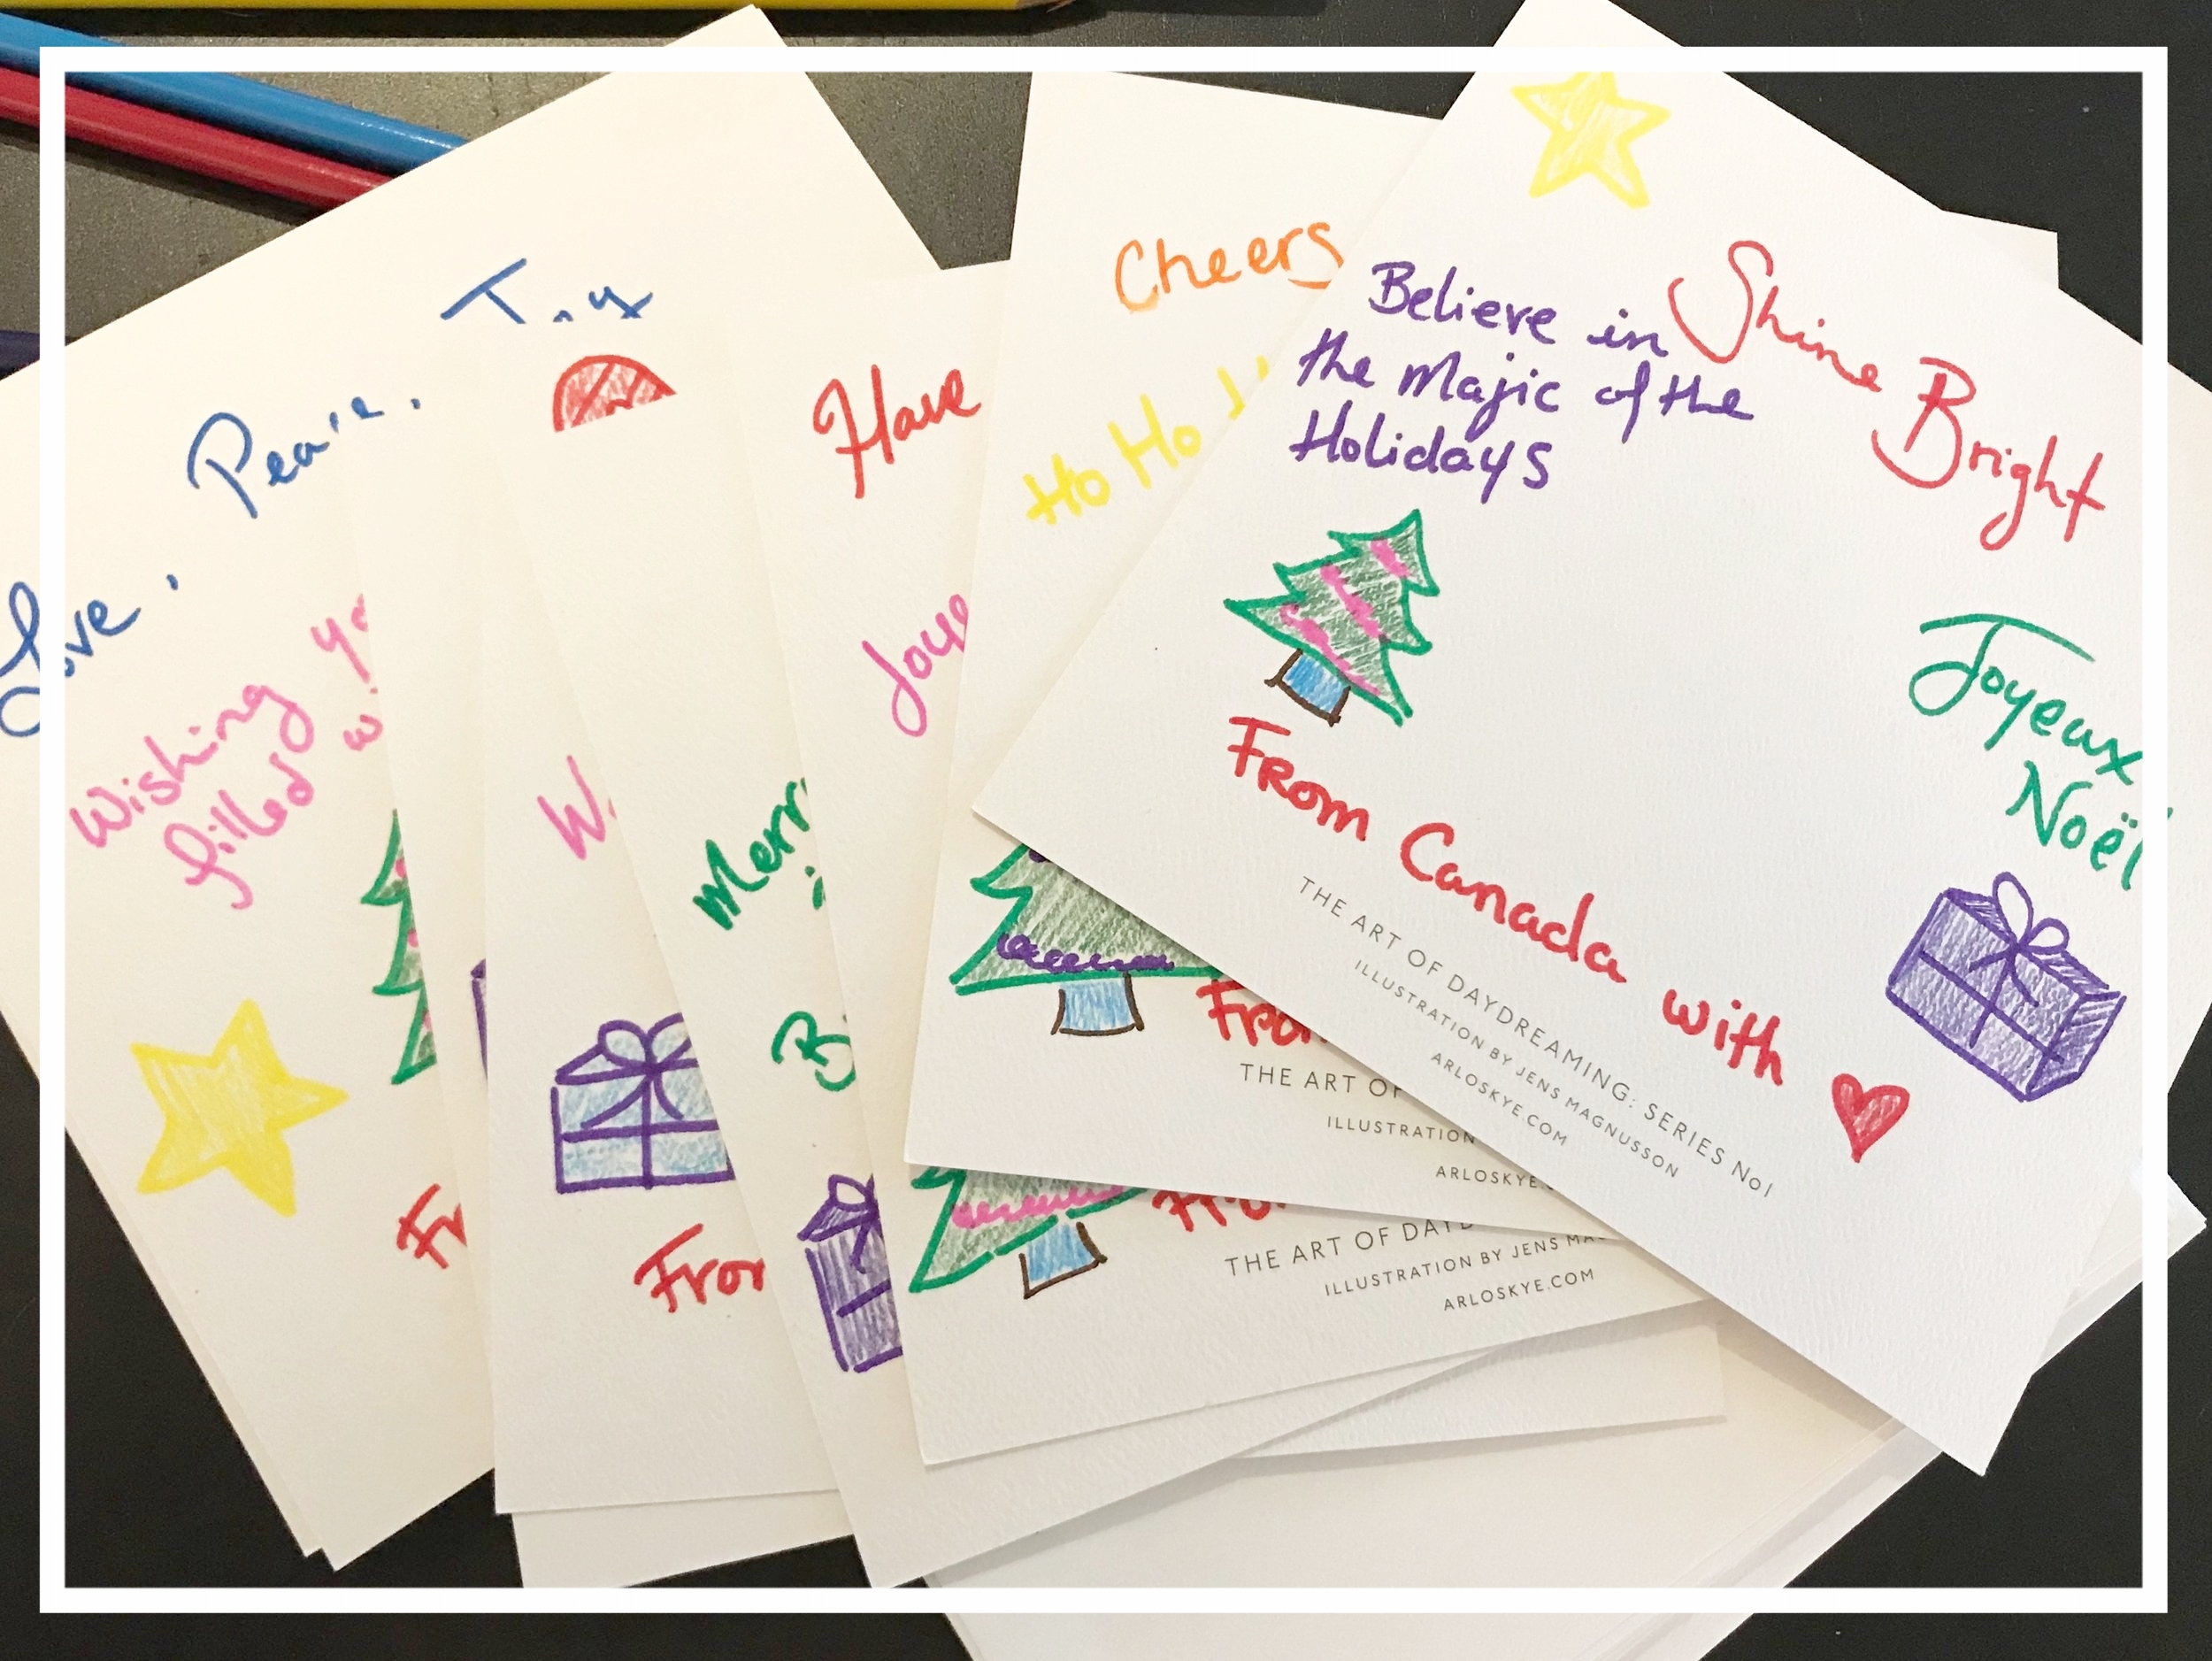 Love.
Peace.
Joy
Wishing
filled
Have
Cheers
Ho Ho
Believe in
the majic of the
Holidays
Shine Bright
Joyeux
Noël
From Canada with
THE ART OF DAYDREAMING: SERIES No1
ILLUSTRATION BY JENS MAGNUSSON
ARLOSKYE.COM
THE ART OF
ILLUSTRATION
ARLOSKYE.
THE ART OF DAYD
ILLUSTRATION BY JENS MA
ARLOSKYE.COM